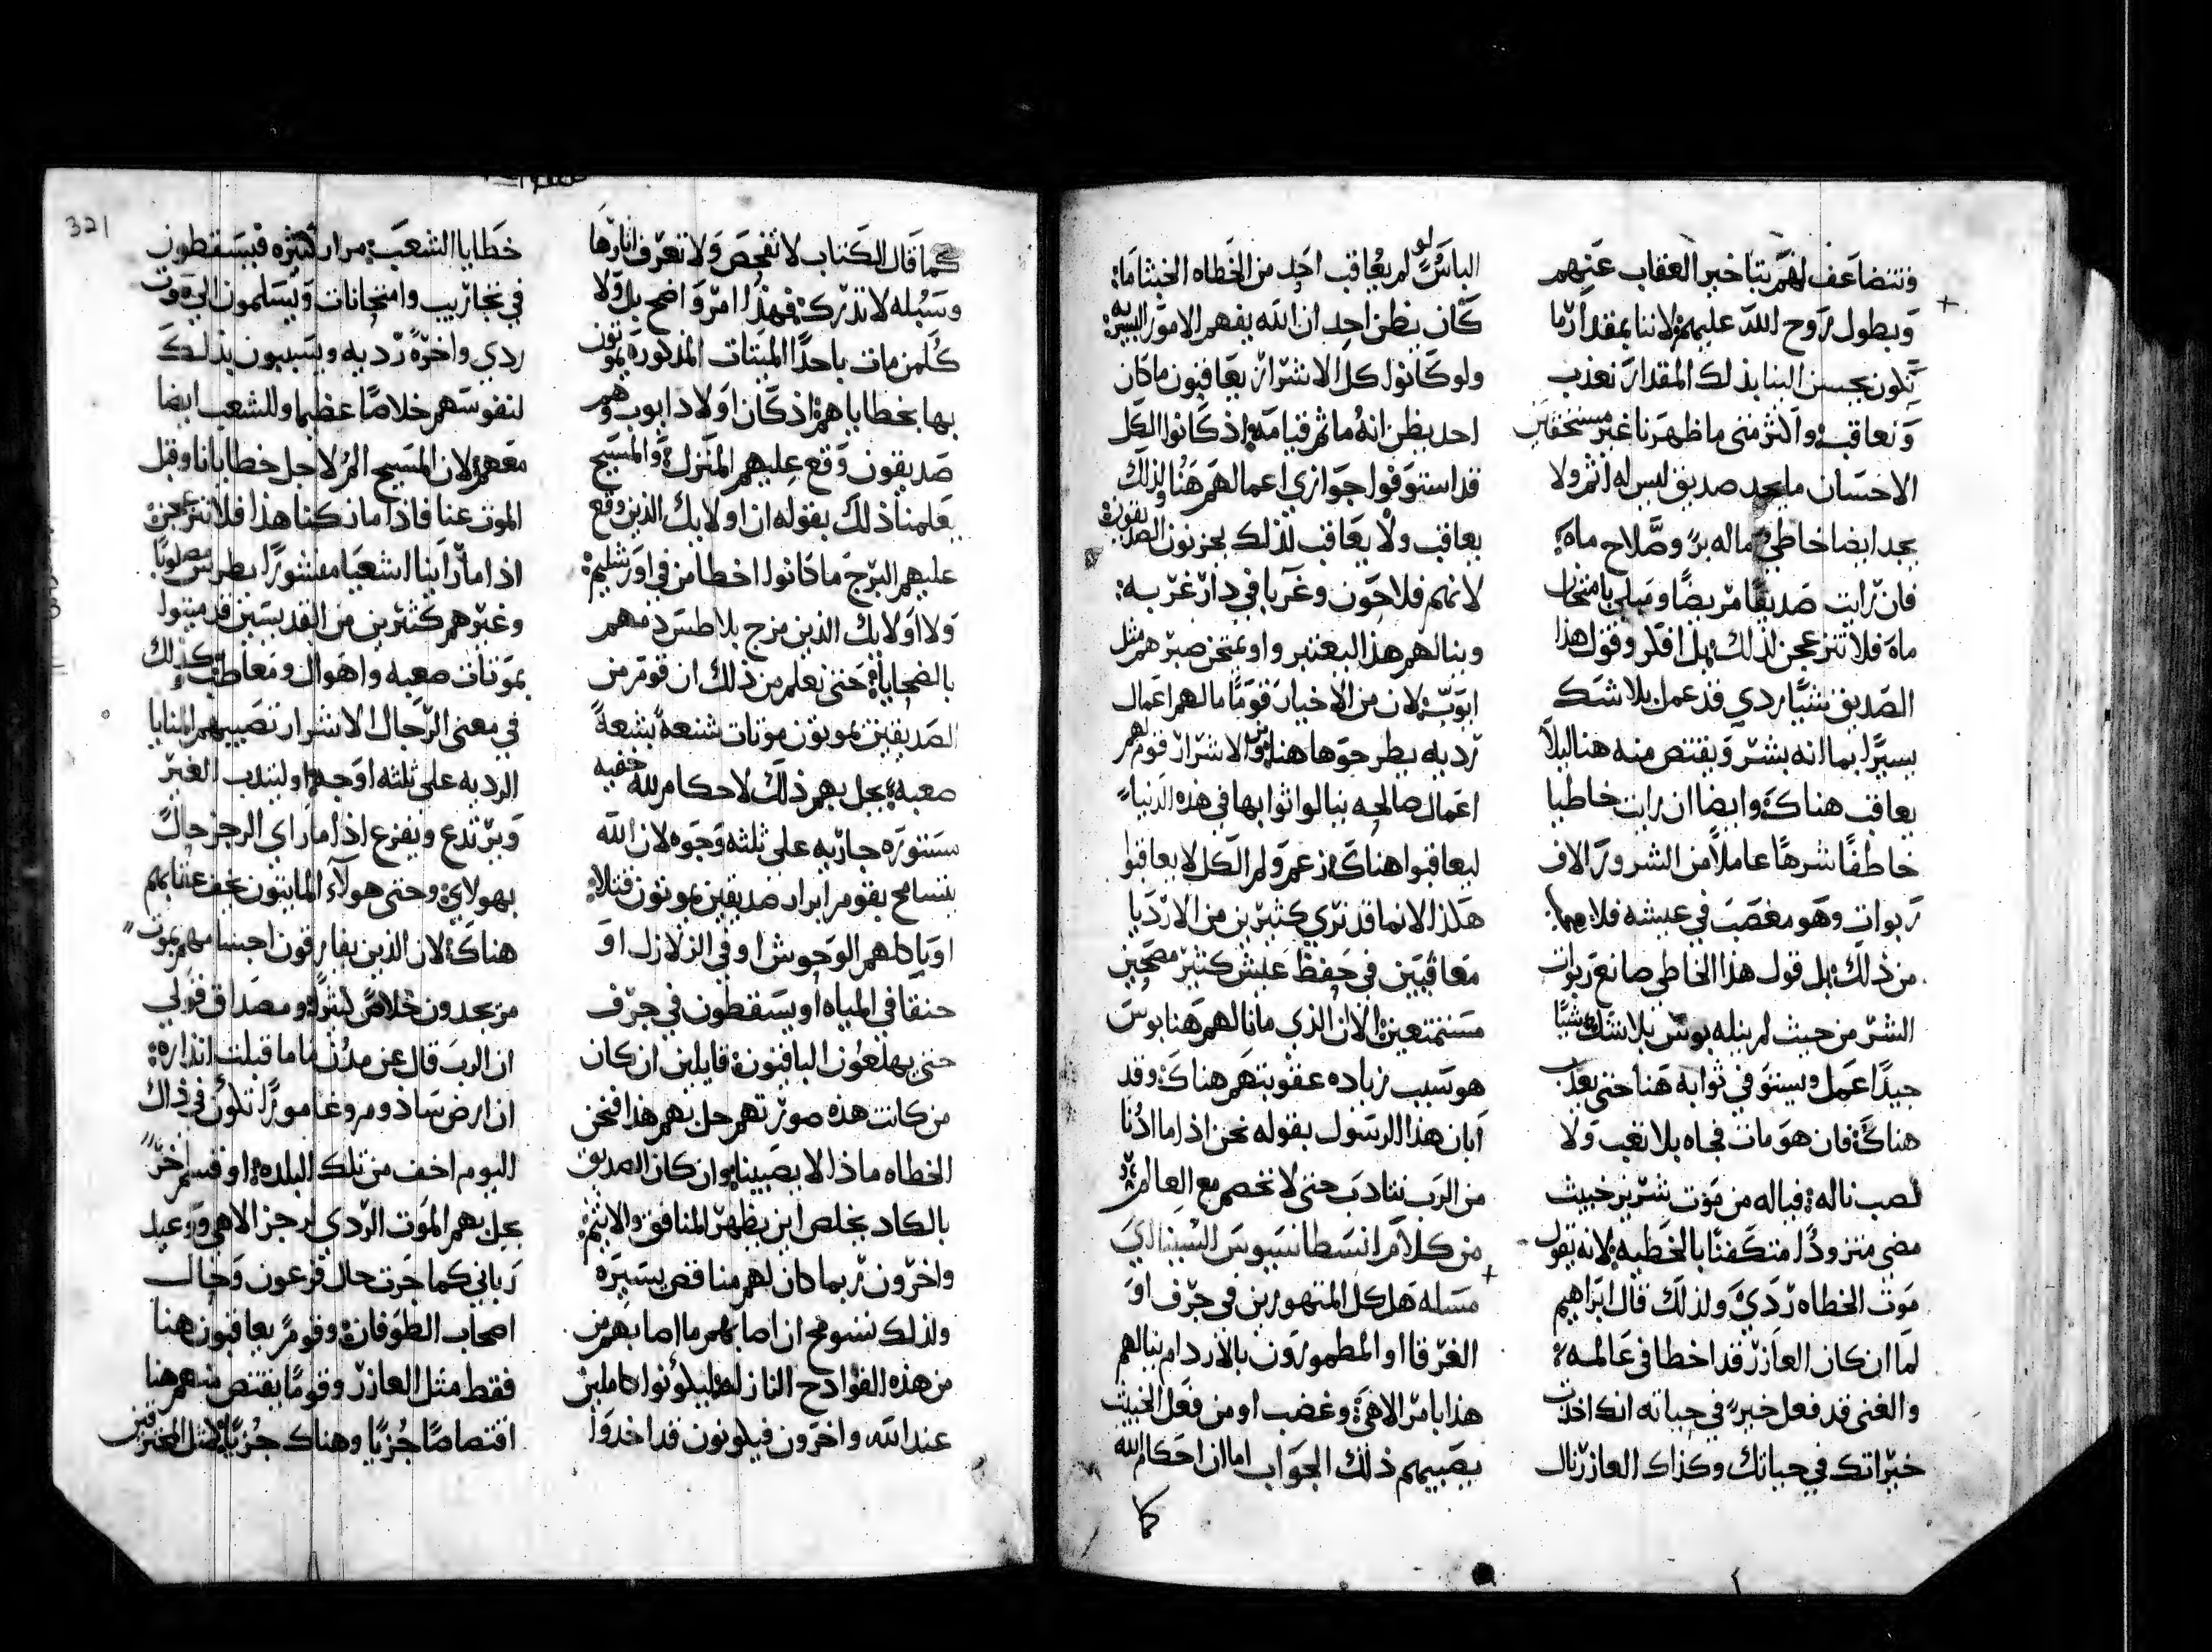 فتتضاعف لهم بتاخير العقاب عنهم
ويطول روح الله عليهم لاننا بمقدار ما
يكون يحسن الينا بذلك المقدار نعذب
ونعاقب واكثر متى ما ظهرنا غير مستحقين
الاحسان ما يجد صديق ليس له اثم ولا
يجد ايضا خاطي ما له بر وصلاح ماه
فان رايت صديقا مريضا ومبلي بامتحان
ماه فلا تنزعجن لذلك بل افكر وقول هذا
الصديق شيا ردي قد عمل بلا شك
يسيرا بما انه بشر ويقتص منه هنا ليلا
يعاقب هناك وايضا ان رايت خاطيا
خاطفا شرها عاملا من الشرور الاف
ربوات وهو مخصب في عيشه فلا
من ذلك بل قول هذا الخاطي صانع ربوات
الشر من حيث لم ينله بوس بلا شك شيا
جيدا عمل ويستوفي ثوابه هنا حتى يعذب
هناك فان هو مات فجاه بلا تعب ولا
نصب ناله فياله من موت شرير خبيث
مضى متزودا متكفنا بالخطيه لانه يقول
موت الخطاه ردي ولذلك قال ابراهيم
لما ان كان العازر قد اخطا في عالمه
والغني قد فعل خير في حياته انك اخذت
خيراتك في حياتك وكذاك العازر نال
الباس لو لم يعاقب احد من الخطاه الخبثا ما
كان يظن احد ان الله يفهم الامور البشريه
ولو كانوا كل الاشرار يعاقبون ما كان
احد يظن انه ما ثم قيامه اذ كانوا الكل
قد استوفوا جوازي اعمالهم هنا ولذلك
يعاقب ولا يعاقب لذلك يحزنون الصديقون
لانهم فلاحون وغربا في دار غربه
وينالهم هذا ليعتبر واو يمتحن صبرهم مثل
ايوب لان من الاخيار قوما ما لهم اعمال
رديه يطرحوها هنا ومن الاشرار قوم لهم
اعمال صالحه ينالوا ثوابها في هذه الدنيا
ليعاقبوا هناك زعم ولم الكل لا يعاقبوا
هكذا الانما قد نري كثيرين من الارديا
معافيين في حفظ عيش كثير مصحين
مستمتعين الان الذي ما نالهم هنا بوس
هو سبب زياده عقوبتهم هناك وقد
ابان هذا الرسول بقوله نحن اذا ما ادنا
من الرب نتادب حتى لا نخصم مع العالم
من كلام انسطاسيوس السينائي
مساله هل كل المتهورين في جرف او
الغرقا او المطمورون بالاردام ينالهم
هذا بامر الاهي وغضب او من فعل الخبيث
يصيبهم ذلك الجواب اما ان احكام الله
كما
كما قال الكتاب لا تفحص ولا تعرف اثارها
وسبله لا تدرك فهذا امر واضح بل ولا
كلمن مات باحدا الميتات المذكوره يموتون
بها بخطاياهم اذ كان اولاد ايوب وهم
صديقون وقع عليهم المنزل والمسيح
يعلمنا ذلك بقوله ان اولايك الذين وقع
عليهم البرج ما كانوا اخطا من في اورشليم
ولا اولايك الذين مزج بلاطس دمهم
بالضحايا حتى نعلم من ذلك ان قوم من
الصديقين يموتون موتات شنعه بشعه
صعبه يحل بهم ذلك لاحكام لله خفيه
مستوره جاريه على ثلثه وجوه لان الله
يتسامح بقوم ابرار صديقين يموتون قتلا
او ياكلهم الوحوش او في الزلازل او
خنقا في المياه او يسقطون في جرف
حتى يهلعون الباقون قايلين ان كان
من كانت هذه صورتهم حل بهم هذا فنحن
الخطاه ماذا لا يصيبنا وان كان الصديق
بالكاد يخلص اين يظهر المنافق والاثيم
واخرون ربما كان لهم مناقص يسيره
ولذلك تسومح ان اصابهم ما اصابهم من
من هذه الفوادح النازله ليكونوا كاملين
عند الله واخرون فيكونون قد اخدوا
خطايا الشعب مرار كثيره فيسقطون
في تجاريب وامتحانات ويسلمون الى موت
ردي واخره رديه ويسببون بذلك
لنفوسهم خلاصا عظيما وللشعب ايضا
معهم لان المسيح الم لاجل خطايانا وقبل
الموت عنا فاذا ما زكنا هذا فلا ننزعجن
اذا ما راينا اشعيا منشورا بطرس مصلوبا
وغيرهم كثيرين من القديسين قد ميتوا
بموتات صعبه واهوال ومعاطب وكذلك
في معنى الرجال الاشرار تصيبهم المنايا
الرديه على ثلثه اوجه او لينذب الغير
ويرتدع ويفزع اذا ما راي الرجز حال
بهولاي وحتى هولاء المايتون يخف عقابهم
هناك لان الذين يفارقون اجسامهم بموت
مز يجدون خلاص كثرا ومصداق قولي
ان الرب قال عن مدن ما ما قبلت انذاره
ان ارض سادوم وغامورا تكون في ذاك
اليوم اخف من تلك البلده او قسم اخر
يحل بهم الموت الردي برجز الاهي ووعيد
رباني كما جرت حال فرعون وحال
اصحاب الطوفان وقوم يعاقبون هنا
فقط مثل العازر وقوما يقتص منهم هنا
اقتصاصا جزيا وهناك جزيا
321